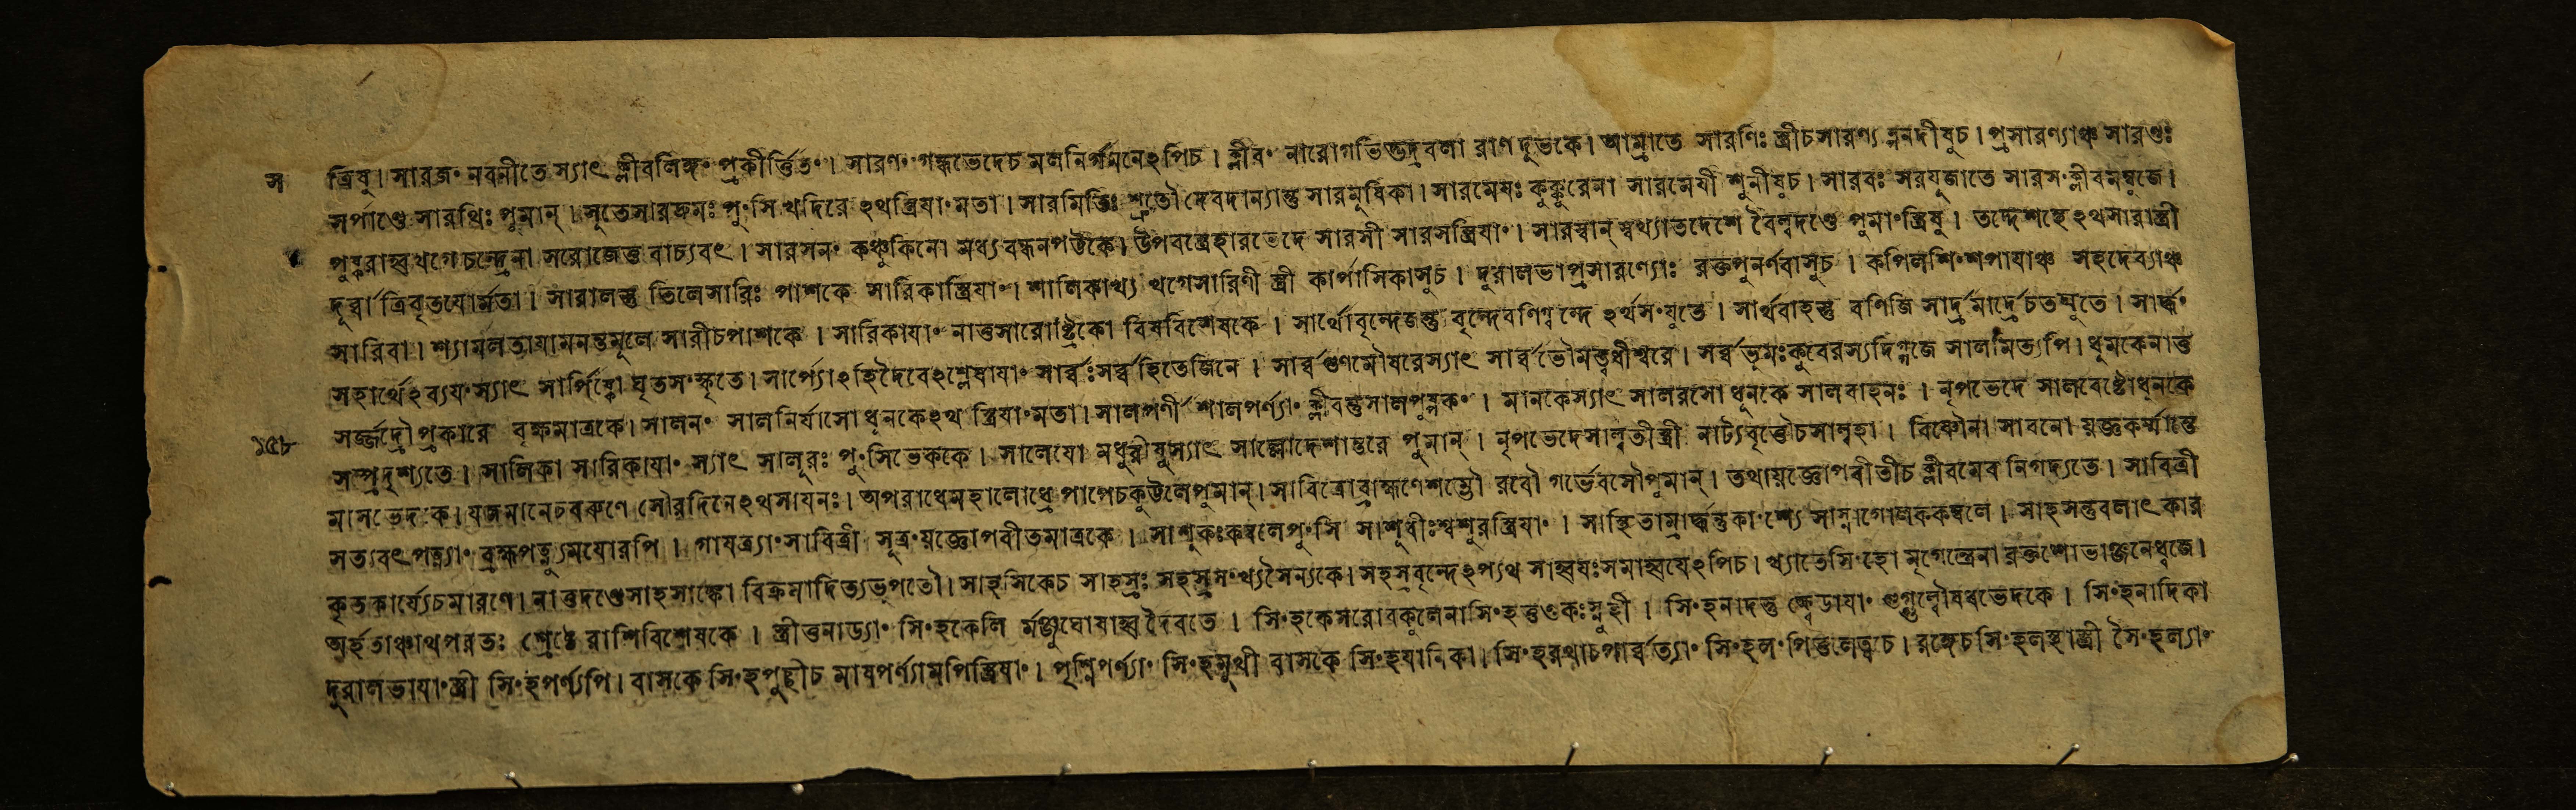 স ত্রিষু। সারজং নবনীতে স্যাৎ ক্লীবলিঙ্গং প্রকীর্ত্তিতং। সারণং গন্ধভেদেচ মলনির্গমনেঽপিচ। ক্লীবং নারোগভিত্তদ্রবলা রাণদুভকে। আম্রাতে সারণিঃ স্ত্রীচসারণ্য নদীষুচ। প্রসারণ্যাঞ্চ সারণ্ডঃ
সর্পাণ্ডে সারথিঃ পুমান্। সূতেসারদ্রুমঃ পুংসিখদিরে ঽথস্ত্রিযাংমতা। সারমিতিঃ শ্রুতৌ দেবদান্যান্তু সারমূষিকা। সারমেযঃ কুক্কুরেনা সারমেযী শুনীষুচ। সারবঃ সরযূজাতে সারসংক্লীবমম্বুজে।
পুষ্করাহ্বখগেচন্দ্রেনা সরোজেতু বাচ্যবৎ। সারসনং কঞ্চুকিনো মধ্যবন্ধনপট্টকে। উপবস্ত্রেহারভেদে সারসী সারসস্ত্রিযাং। সারস্বান্ স্বখ্যাতদেশে বৈল্বদণ্ডে পুমাংস্ত্রিষু। তদ্দেশস্থেঽথসারাস্ত্রী
দূর্ব্বাত্রিবৃতযোর্মতা। সারালস্তু তিলেসারিঃ পাশকে সারিকাস্ত্রিযাং। শালিকাখ্য খগেসারিণী স্ত্রী কার্পাসিকাসুচ। দুরালভাপ্রসারণ্যোঃ রক্তপুনর্ণবাসুচ। কপিলশিংশপাযাঞ্চ সহদেব্যাঞ্চ
সারিবা। শ্যামলতাযামনন্তমূলে সারীচপাশকে। সারিকাযাং নাত্তসারোষ্ট্রিকো বিষবিশেষকে। সার্থোবৃন্দেজন্তু বৃন্দেবণিগ্বৃন্দে ঽর্থসংযুতে। সার্থবাহস্তু বণিজি সার্দ্রমার্দ্রেচতদ্যুতে। সার্দ্ধং
সহার্থেঽব্যযংস্যাৎ সার্পিষ্কো ঘৃতসংস্কৃতে। সার্প্যোঽহিদৈবেঽশ্লেষাযাং সার্ব্বঃসর্ব্বহিতেজিনে। সার্ব্বগুণমৌষরেস্যাৎ সার্ব্বভৌমস্ত্বধীশ্বরে। সর্ব্বভূমঃকুবেরস্যদিগ্গজে সালমিত্যপি। ধূমকেনাতু
১৫৮ সর্জ্জদ্রৌপ্রকারে বৃক্ষমাত্রকে। সালনং সালনির্যাসো ধূনকেঽথ স্ত্রিযাংমতা। সালপর্ণী শালপর্ণ্যাং ক্লীবন্তুসালপুষ্পকং। মানকেস্যাৎ সালরসো ধূনকে সালবাহনঃ। নৃপভেদে সালবেষ্টোধূনকে
সম্প্রদৃশ্যতে। সালিকা সারিকাযাং স্যাৎ সালূরঃ পুংসিভেককে। সালেযো মধুরীষুস্যাৎ সাল্বোদেশান্তরে পুমান্। নৃপভেদেসাত্বতীস্ত্রী নাট্যবৃত্তৌচসাল্বহা। বিষ্ণৌনা সাবনো যজ্ঞকর্ম্মান্তে
মাসভেদকে। যজমানেচবরুণে সৌরদিনেঽথসাযনঃ। অপরাধেমহালোধ্রে পাপেচকুউলেপুমান্। সাবিত্রোব্রাহ্মণেশম্ভৌ রবৌ গর্ভেবসৌপুমান্। তথাযজ্ঞোপবীতীচ ক্লীবমেব নিগদ্যতে। সাবিত্রী
সত্যবৎপত্ন্যাং ব্রহ্মপত্ন্যুমযোরপি। গাযত্র্যাংসাবিত্রী সূত্রংযজ্ঞোপবীতমাত্রকে। সাশূকঃকম্বলেপুংসি সাশূধীঃশ্বশুরস্ত্রিযাং। সাস্থিতাম্রার্দ্ধন্তুকাংশ্যে সাস্নাগোলককম্বলে। সাহসন্তুবলাৎকার
কৃতকার্য্যেচমারণে। নাতুদণ্ডেসাহসাঙ্কো বিক্রমাদিত্যভূপতৌ। সাহসিকেচ সাহস্রঃ সহস্রসংখ্যসৈন্যকে। সহস্রবৃন্দেঽপ্যথ সাহ্বযঃসমাহ্বযেঽপিচ। খ্যাতেসিংহো মৃগেন্দ্রেনা রক্তশোভাঞ্জনেধ্বজে।
অর্হতাঞ্চাথপরতঃ শ্রেষ্ঠে রাশিবিশেষকে। স্ত্রীতুনাড্যাং সিংহকেলি র্মঞ্জুঘোষাহ্ব দৈবতে। সিংহকেসরোবকুলেনাসিংহতুণ্ডকঃস্নুহী। সিংহনাদস্তু ক্ষ্বেডাযাং গুগ্গুল্বৌষধভেদকে। সিংহনাদিকা
দুরালভাযাংস্ত্রী সিংহপর্ণ্যপি। বাসকে সিংহপুচ্ছীচ মাষপর্ণ্যামপিস্ত্রিযাং। পৃশ্নিপর্ণ্যাং সিংহমুখী বাসকে সিংহযানিকা। সিংহরথাচপার্ব্বত্যাং সিংহলংপিত্তলেত্বচে। রঙ্গেচসিংহলস্থাস্ত্রী সৈংহল্যাং